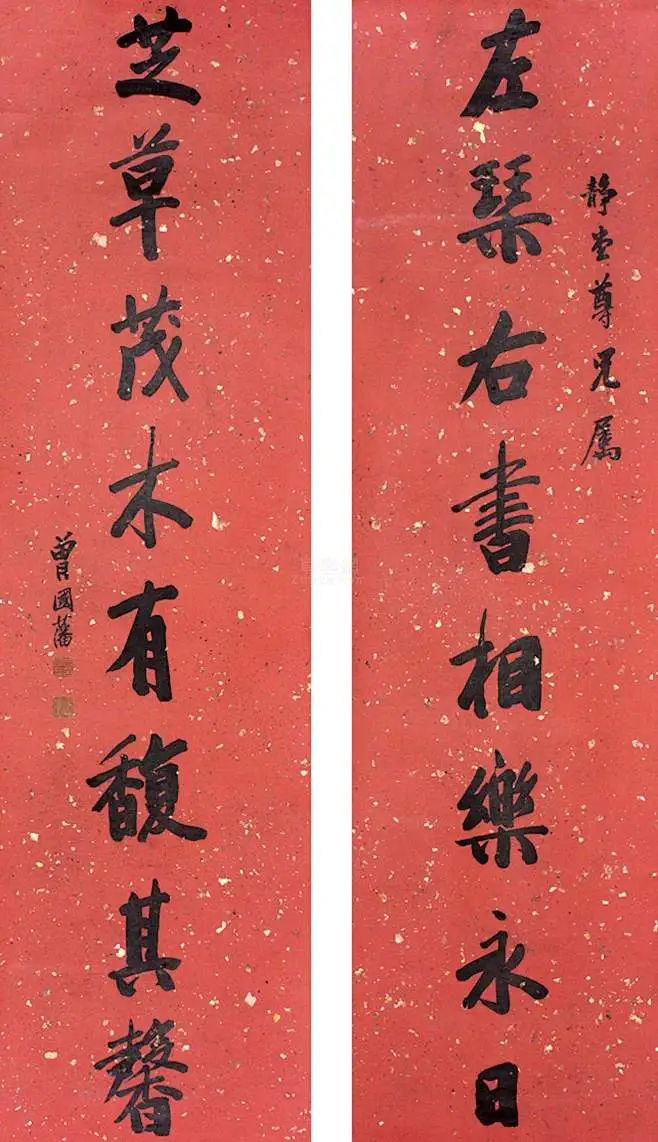 左琴右書相樂永日
静堂尊兄属
芝草茂木有馥其馨
曾國藩